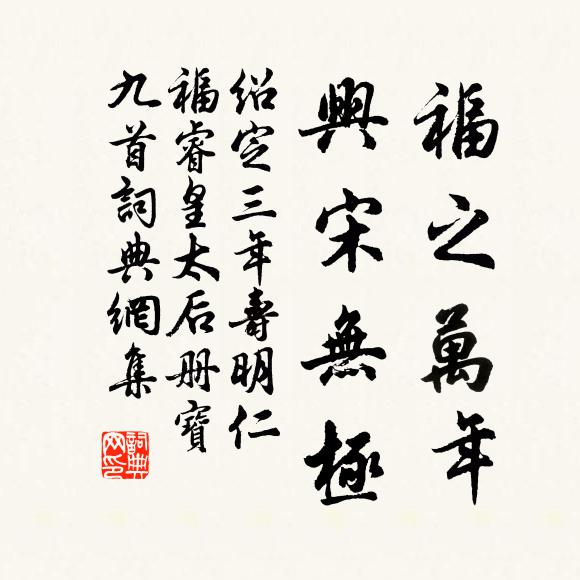 福之萬年
興宋無極
紹定三年壽明仁
福睿皇太后册寶
九首詞典網集
詞典
网印